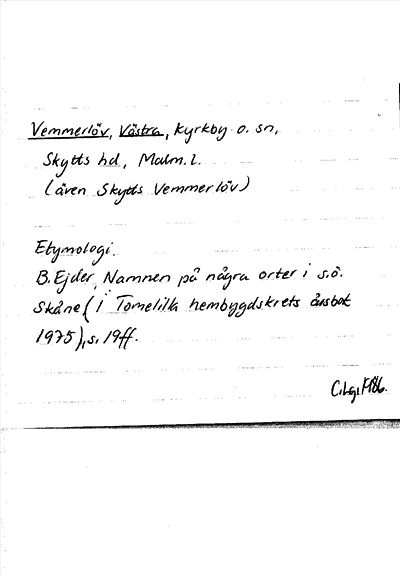 Vemmerlöv, Västra, kyrkby o. sn,
Skytts hd, Malm. l.
(även Skytts Vemmerlöv)
Etymologi.
B. Ejder, Namnen på några orter i s.ö.
Skåne (i Tomelilla hembygdskrets årsbok
1975), s. 19ff.
C.Lg. 1986.